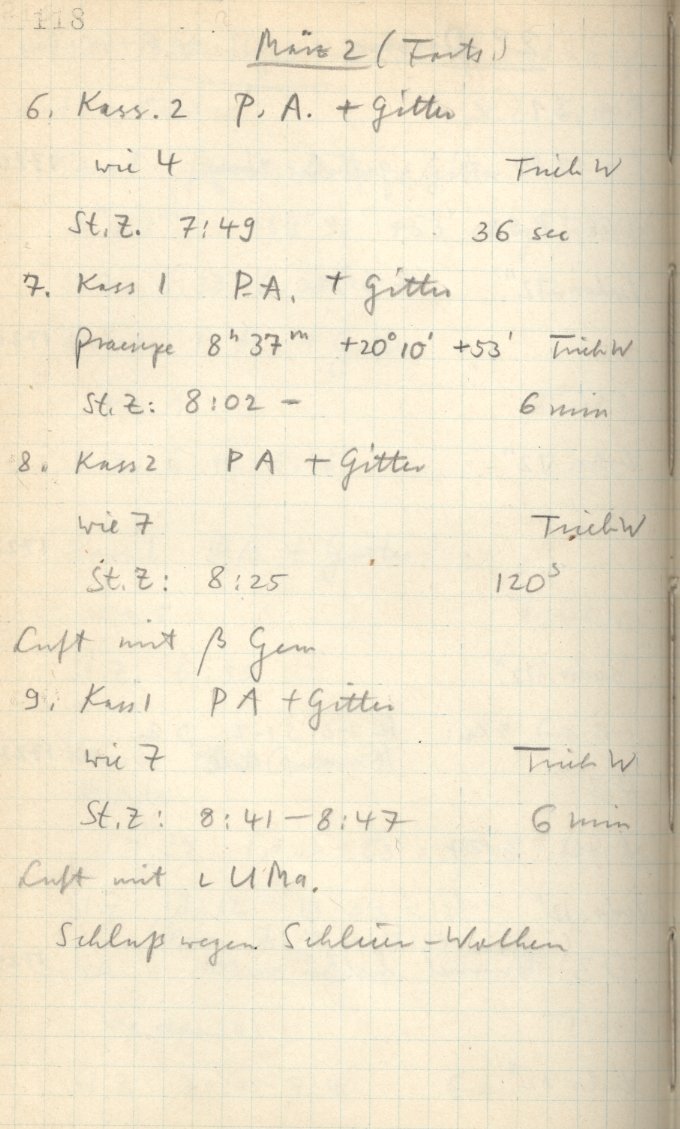 118
März 2 (Forts.)
6. Kass. 2 P. A. + Gitter
wie 4 Trieb W
St. Z. 7:49 36 sec
7. Kass 1 P.A. + Gitter
Praesepe 8h 37m +20° 10' +53' Trieb W
St. Z: 8:02 – 6 min
8. Kass 2 P A + Gitter
wie 7 Trieb W
St. Z: 8:25 120s
Luft mit β Gem
9. Kass 1 P A + Gitter
wie 7 Trieb W
St. Z: 8:41 – 8:47 6 min
Luft mit ι U Ma.
Schluß wegen Schleier-Wolken